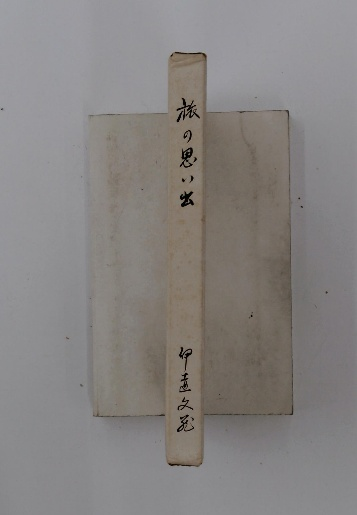 旅の思い出
伊達文